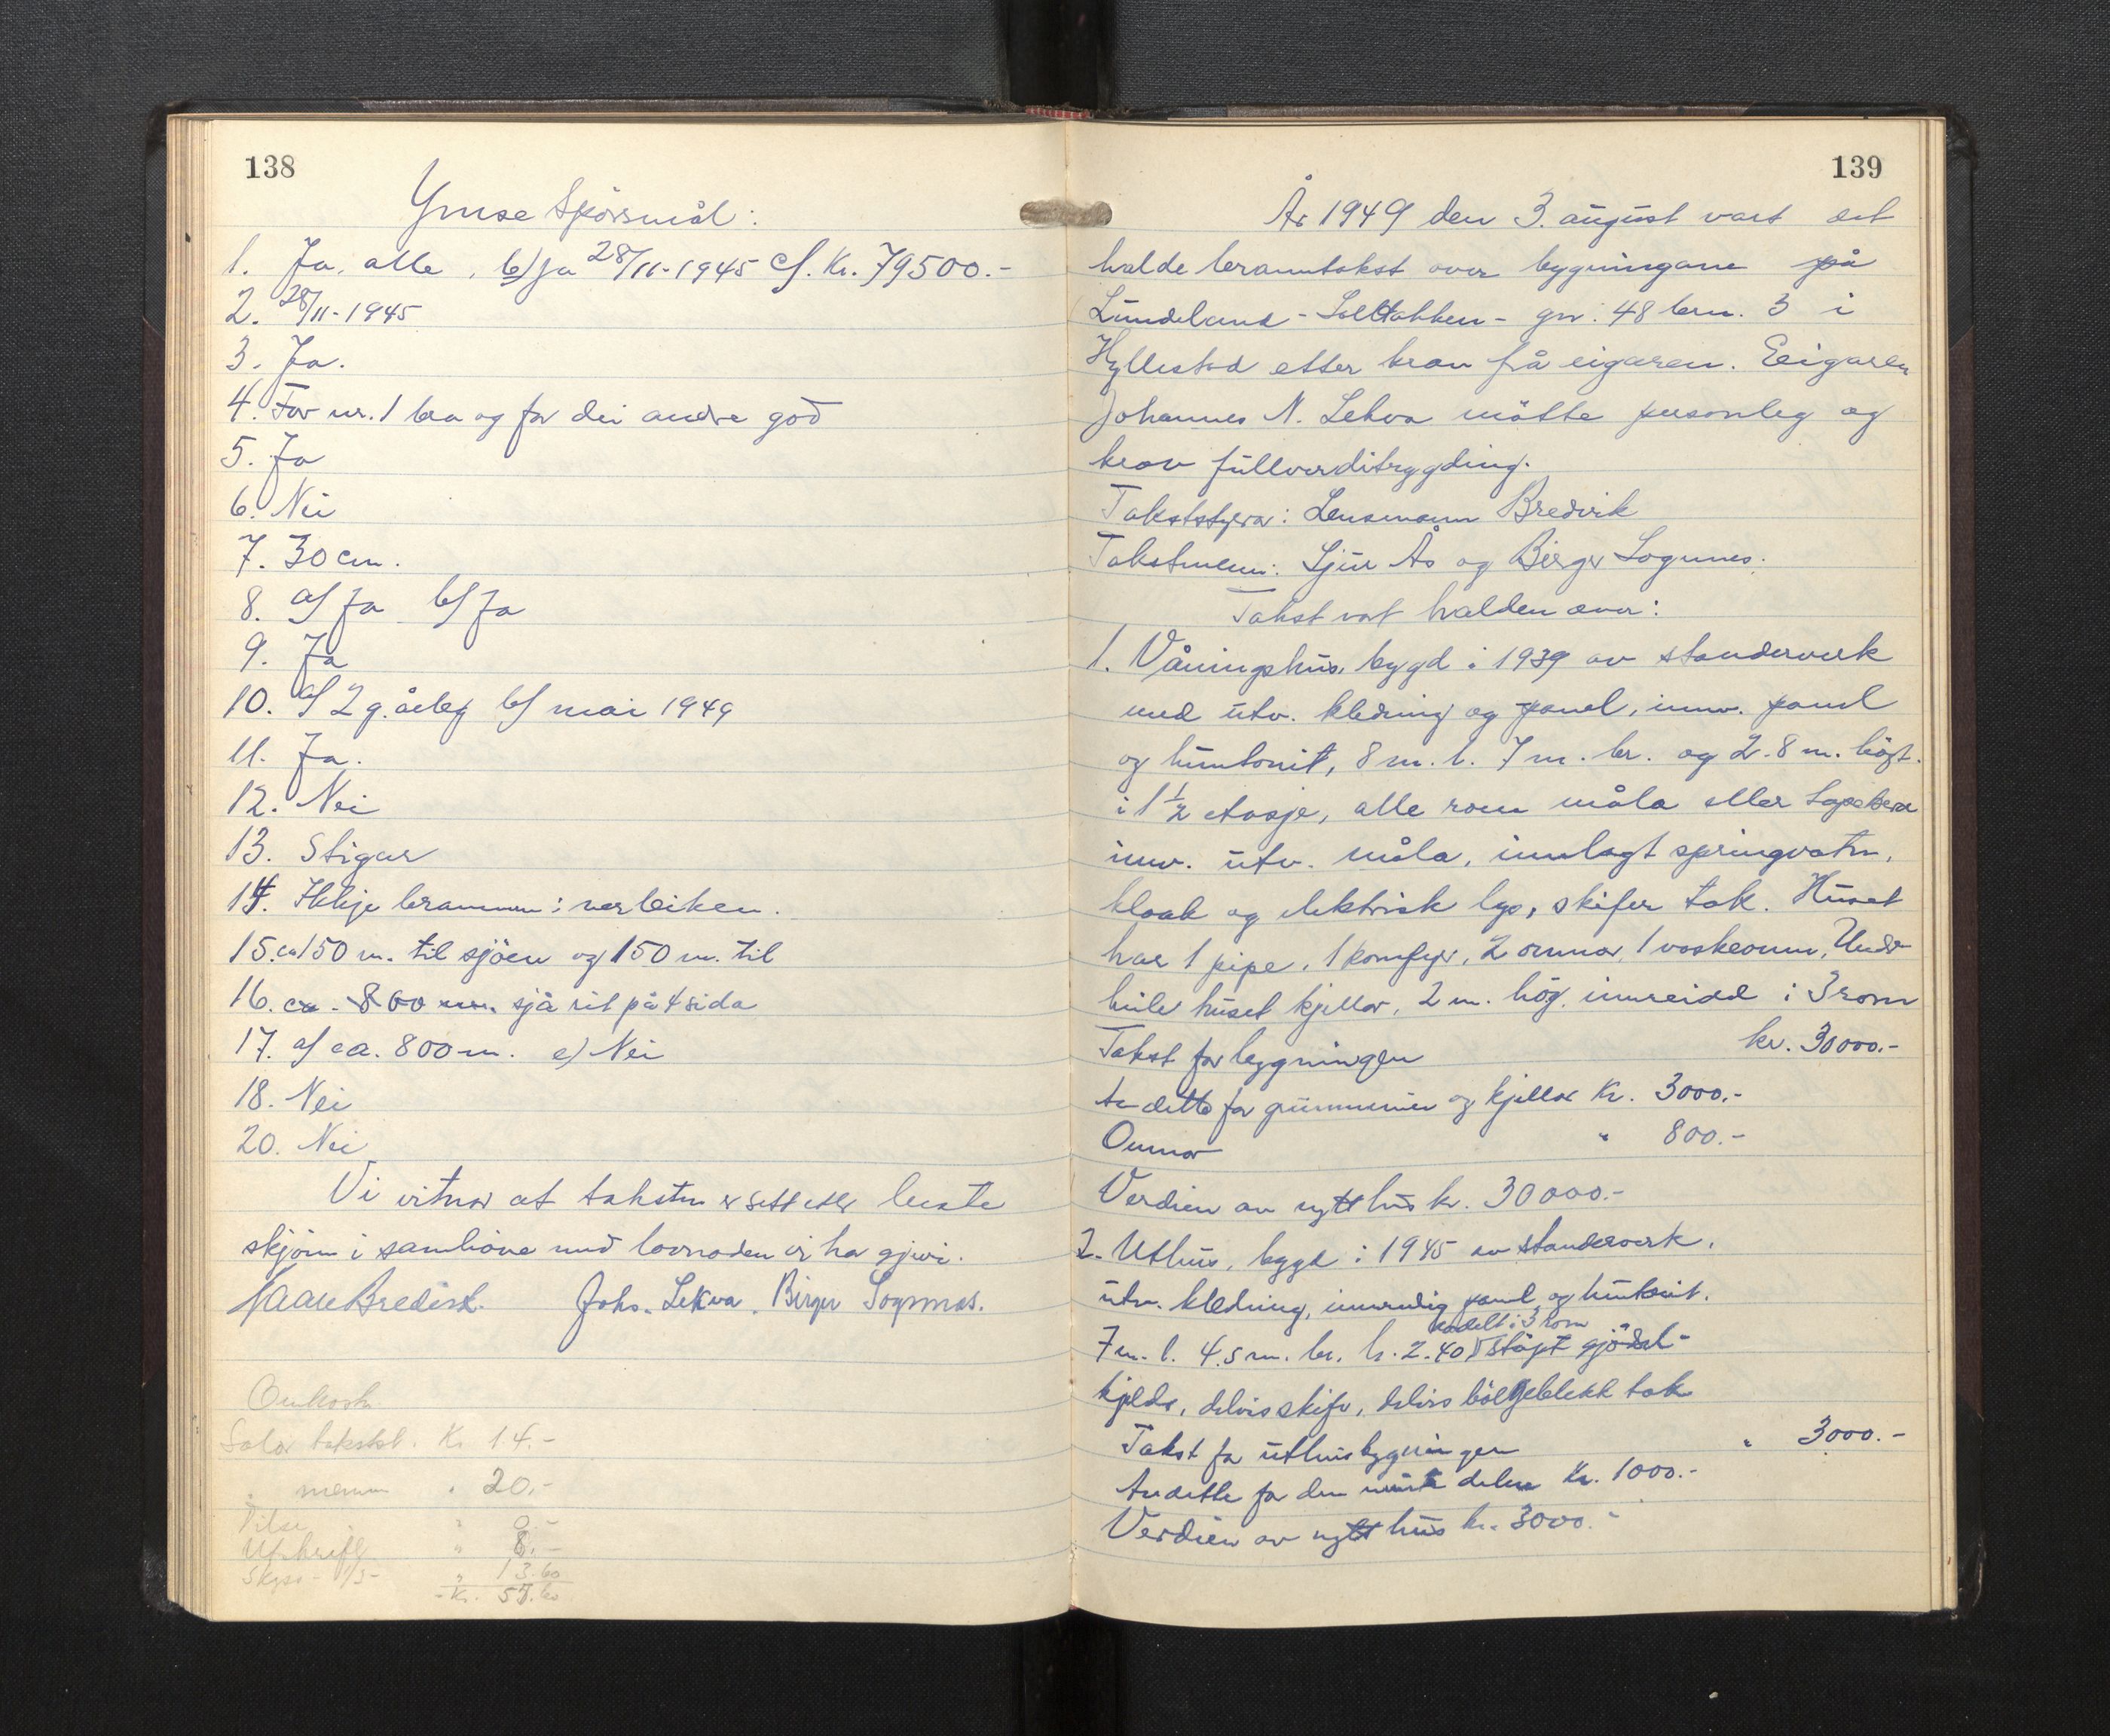 138
Ymse Spörsmål:
1. Ja, alle, b/ Ja 28/11-1945 c/. Kr. 79500.-
2. 28/11-1945
3. Ja.
4. For nr. 1 bra og for dei andre god
5. Ja
6. Nei
7. 30 cm.
8. a/ Ja b/ Ja
9. Ja
10. a/ 2 g. årleg b/ mai 1949
11. Ja.
12. Nei
13. Stigar
14. Ikkje brannm:
15. ca 150 m. til sjöen og 150 m. til
16. ca. 800 m. sjå rit på 4 sida
17. a/ ca. 800 m. c) Nei
18. Nei
20. Nei
Vi vitnar at taksten er sett etter beste
skjön i samhöve med lovnaden vi har gjevi.
Bredvik. Johs. Lekva. Birger Sognnes.
Omkostn.
Salar takstst. Kr. 14.-
" menn " 20.-
" 0.-
Utskrift " 8.-
Skyss " 13.60
Kr. 57.60
139
År 1949 den 3. august vart det
halde branntakst over bygningane på
Lundeland - - gnr. 48 brn. 3 i
Hyllestad etter krav frå eigaren. Eeigaren
Johannes N. Lekva mötte personleg og
krav fullverditrygding.
Takststyrar: Lensmann Bredvik
Takstmenn: Sjur Ås og Birger Sognnes.
Takst vart halden over:
1. Våningshus, bygd i 1939 av standerverk
med utv. kledning og panel, innv. panel
og huntonit, 8 m. l. 7 m. br. og 2.8 m. högt.
i 1 1/2 etasje, alle rom måla eller tapetsera
innv. utv. måla, innlagt springvatn,
kloak og elektrisk lys, skifer tak. Huset
har 1 pipe, 1 komfyr, 2 omnar, 1 vaskeomn, Under
heile huset kjellar, 2 m. hög, innreidd i 3 rom
Takst for bygningen kr. 30000.-
Av dette for grunnmur og kjellar Kr. 3000.-
Omnar " 800.-
Verdien av nytt hus kr. 30000.-
2. Uthus, bygd i 1945 av standerverk,
utv. kledning, innvendig panel og huntonit.
inndelt i 3 rom
7 m. l. 4.5 m. br. h. 2.40 støypt gjödsel-
kjeldar, delvis skifer, delvis bölgjeblekk tak
Takst for uthusbygningen " 3000.-
Av dette for den murte delen Kr. 1000.-
Verdien av nytt hus kr. 3000.-